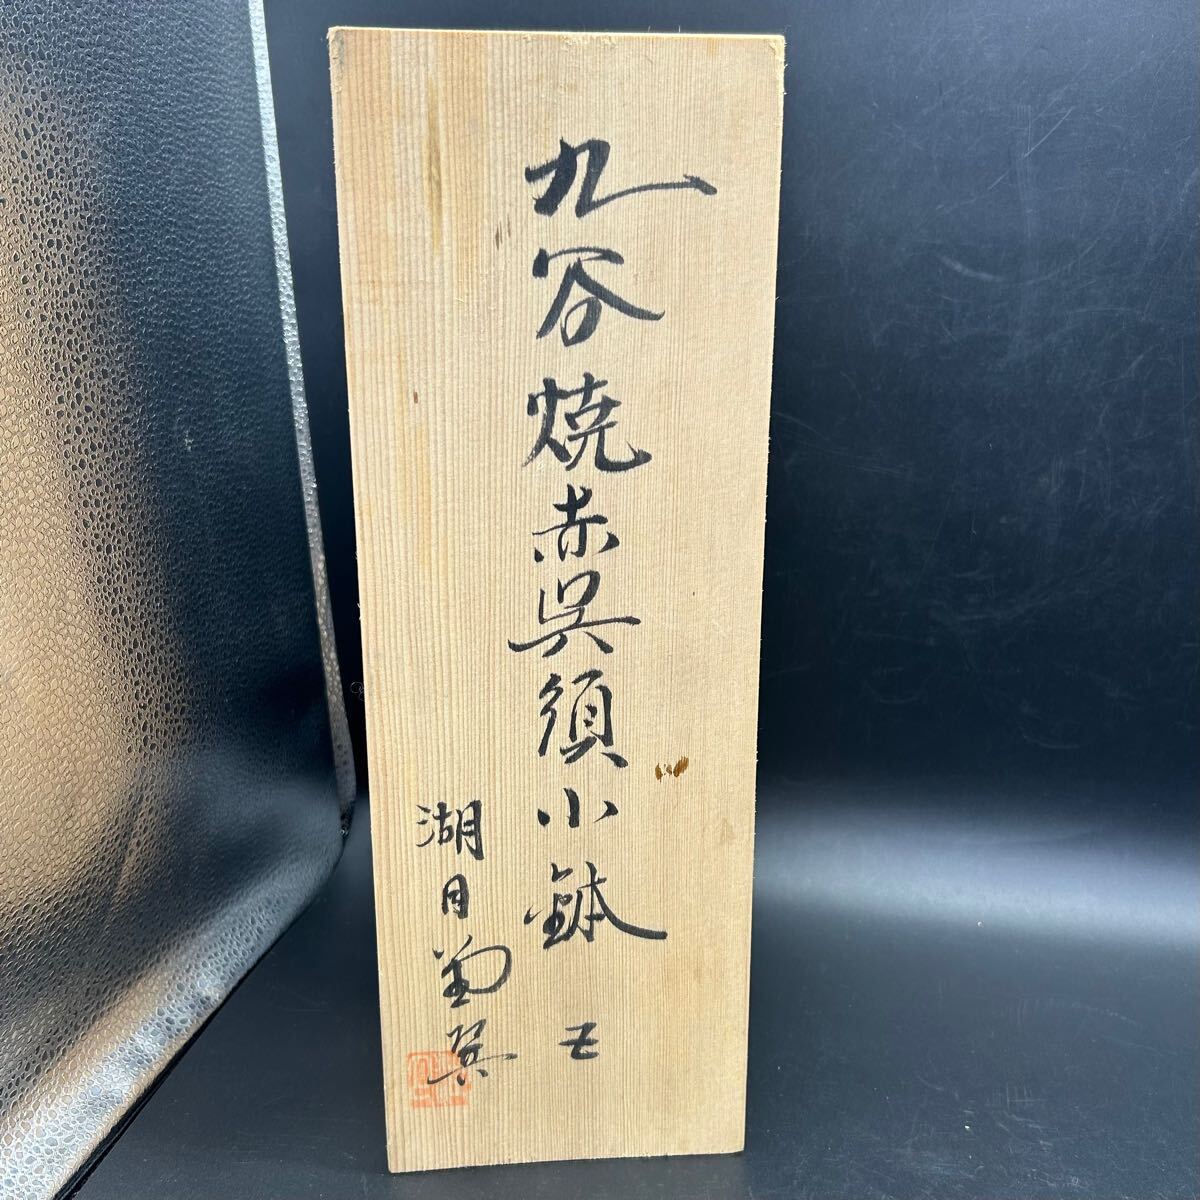 九谷焼赤呉須小鉢 五
湖月窯